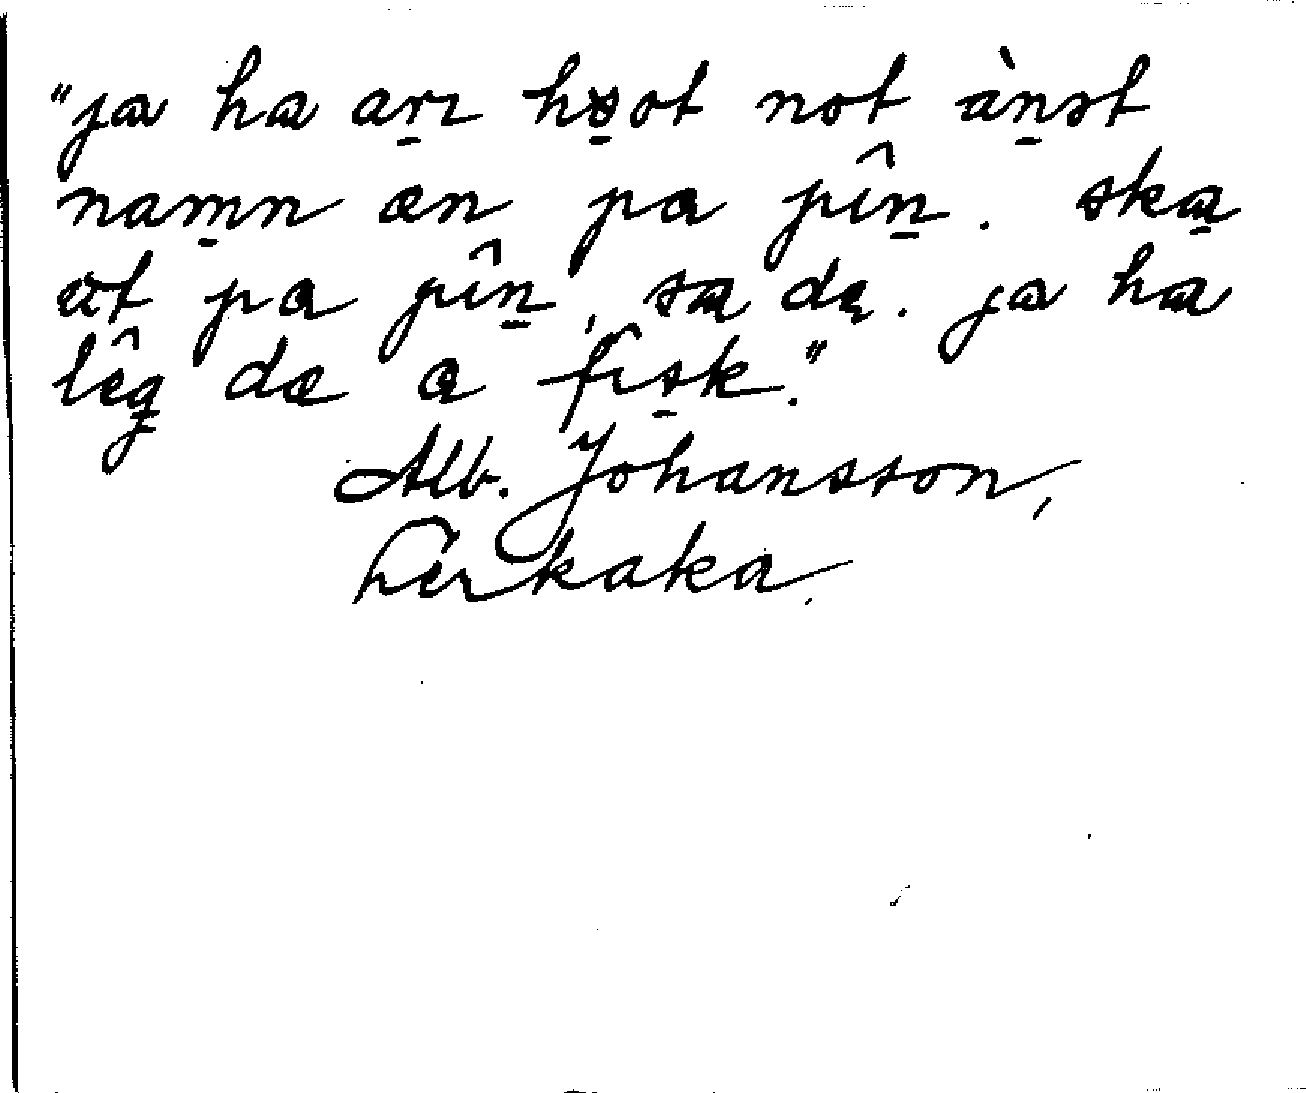 "ja ha arɪ hɵot not ànst
namn æn pa pîn. ska
æt pa pîn, sa dæ. ja ha
lêg dæ a fisk."
Alb. Johansson,
Lerkaka.